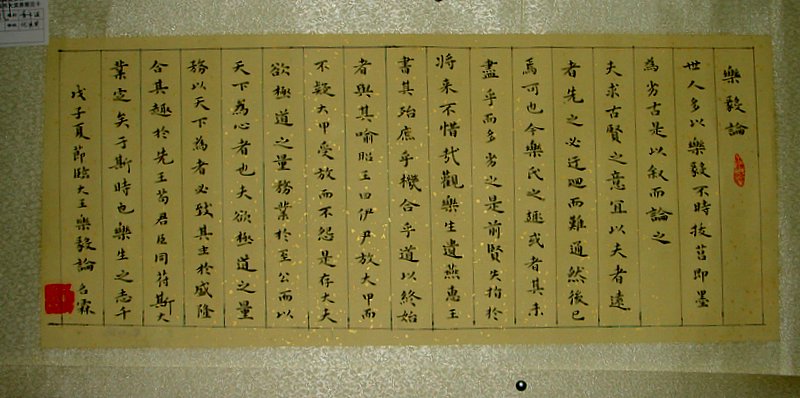 樂毅論
世人多以樂毅不時拔莒即墨
為劣古是以叙而論之
夫求古賢之意宜以夫者遠
者先之必迂迴而難通然後已
焉可也今樂氏之趣或者其未
盡乎而多劣之是前賢失指於
将来不惜哉觀樂生遺燕惠王
書其殆庶乎機合乎道以終始
者與其喻昭王曰伊尹放大甲而
不疑大甲受放而不怨是存大夫
欲極道之量務業於至公而以
天下為心者也夫欲極道之量
務以天下為者必致其主於盛隆
合其趣於先王苟君臣同符斯大
業定矣于斯時也樂生之志千
戊子夏節臨大王樂毅論